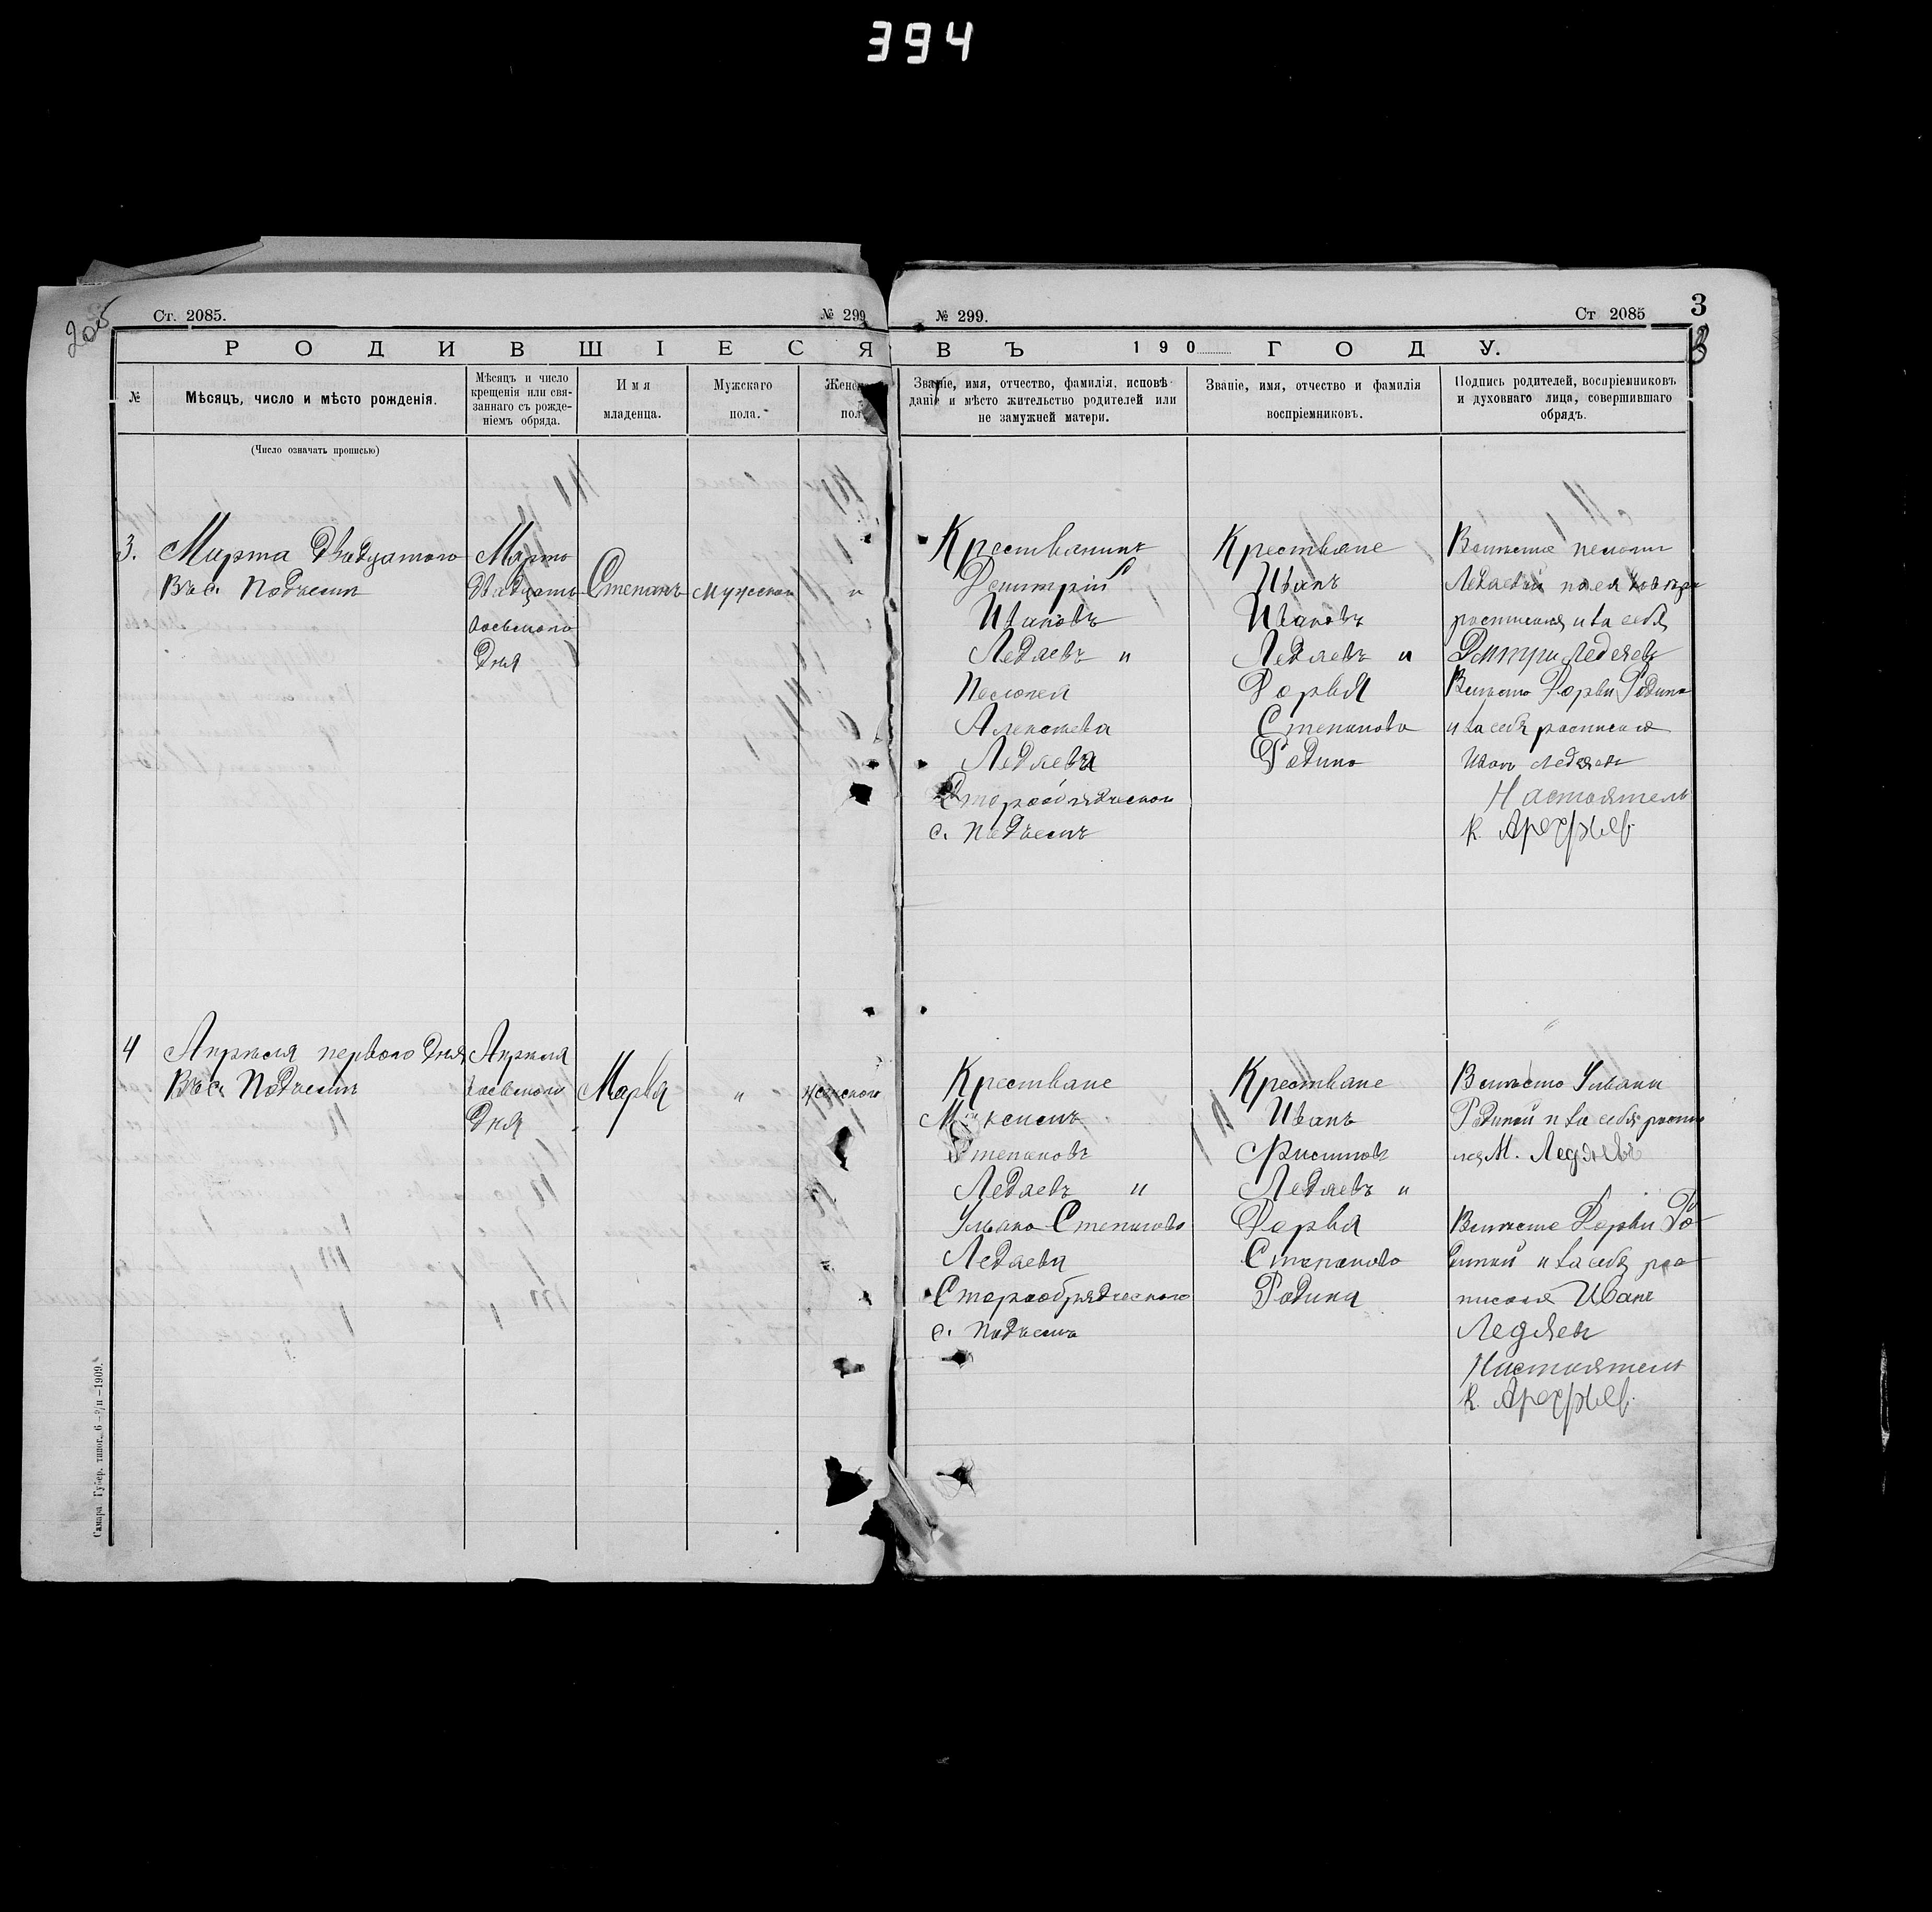 394
205
Ст. 2085.
№ 299
№ 299.
Ст 2085
3
РОДИВШІЕСЯ
ВЪ 190 ГОДУ.
№
Мѣсяцъ, число и мѣсто рожденія.
Мѣсяцъ и число крещенія или свя-
заннаго съ рожде-
ніемъ обряда.
Имя
младенца.
Мужскаго
пола.
Женск
пол
Званіе, имя, отчество, фамилія, исповѣ-
даніе и мѣсто жительство родителей или
не замужней матери.
Званіе, имя, отчество и фамилія
воспріемниковъ.
Подпись родителей, воспріемниковъ
и духовнаго лица, совершившаго
обрядъ.
(Число означать прописью)
3.
Марта двадцатого
Въ с.
Марта
двадцать
восьмого
дня
Степанъ
мужского
"
Крестьянинъ
Дмитрій
Ивановъ
Ледяевъ и
Алексѣева
Ледяева
Старообрядческого
с.
Крестьяне
Иванъ
Ивановъ
Ледяевъ и
Дарья
Степанова
Родина
Ледяевой
и за себя
Дмитри Ледеевъ
Дарьи Родина
и за себя росписался
Иван Ледяевъ
Настоятель
К. Арефьев.
4
Апрѣля первого дня
Въ с.
Апрѣля
восьмого
дня
Марья
"
женского
Крестьяне
Максимъ
Степановъ
Ледяевъ и
Ульяна Степанова
Ледяева
Старообрядческого
с.
Крестьяне
Иванъ
Ледяевъ и
Дарья
Степанова
Родина
Ульяны
и за себя роспи
ся М. Ледяевъ
Дарьи Ро
и за себя рос
писался Иванъ
Ледяевъ
Настоятель
К. Арефьев.
Самара. Губер. типог. 6 – 1909.